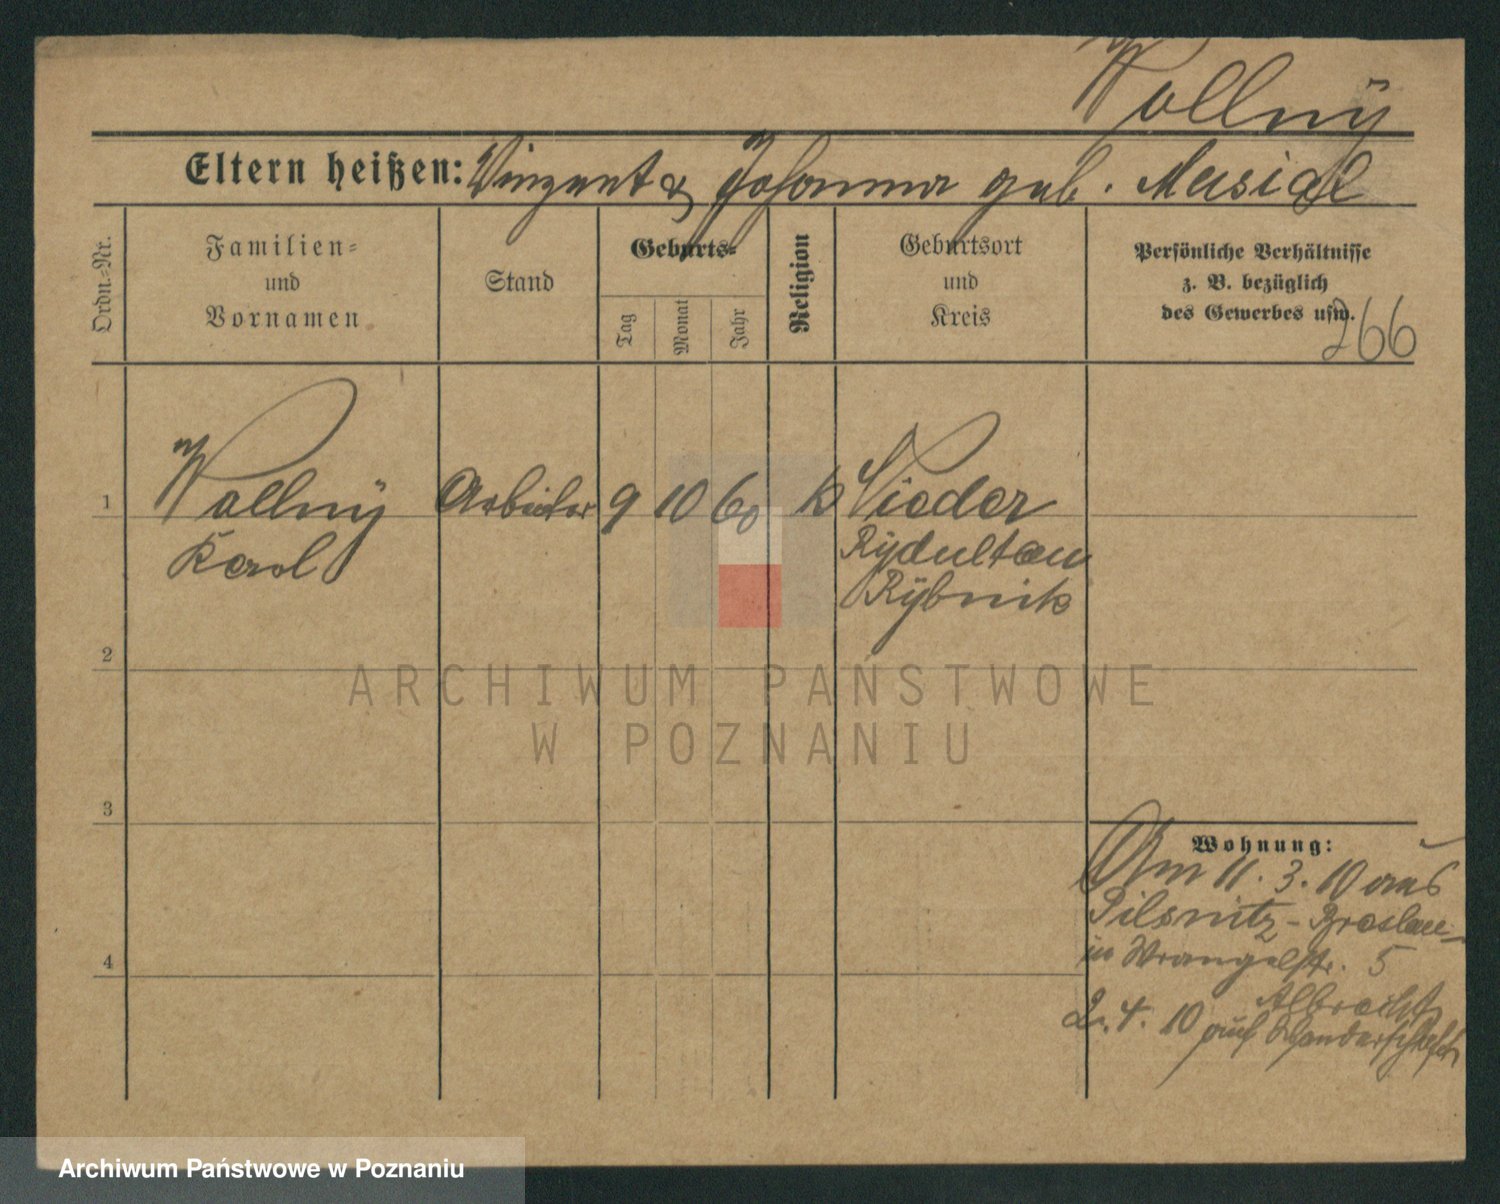 Wollnÿ
Eltern heißen: Vinzent & Johanna geb. Musial
Ordn.=Nr.
Familien=
und
Vornamen
Stand
Geburts=
Tag
Monat
Jahr
Religion
Geburtsort
und
Kreis
Persönliche Verhältnisse
z. B. bezüglich
des Gewerbes usw.
266
1
Wollnÿ
Karol
Arbeiter
9
10
60
k
Nieder
Rÿdultau
Rÿbnik
2
3
4
Wohnung:
Am 11. 3. 10 aus
Pilsnitz - Breslau
in Wrangelstr. 5
Albrecht
2. 4. 10 auf Wanderschaft
ARCHIWUM PAŃSTWOWE
W POZNANIU
Archiwum Państwowe w Poznaniu